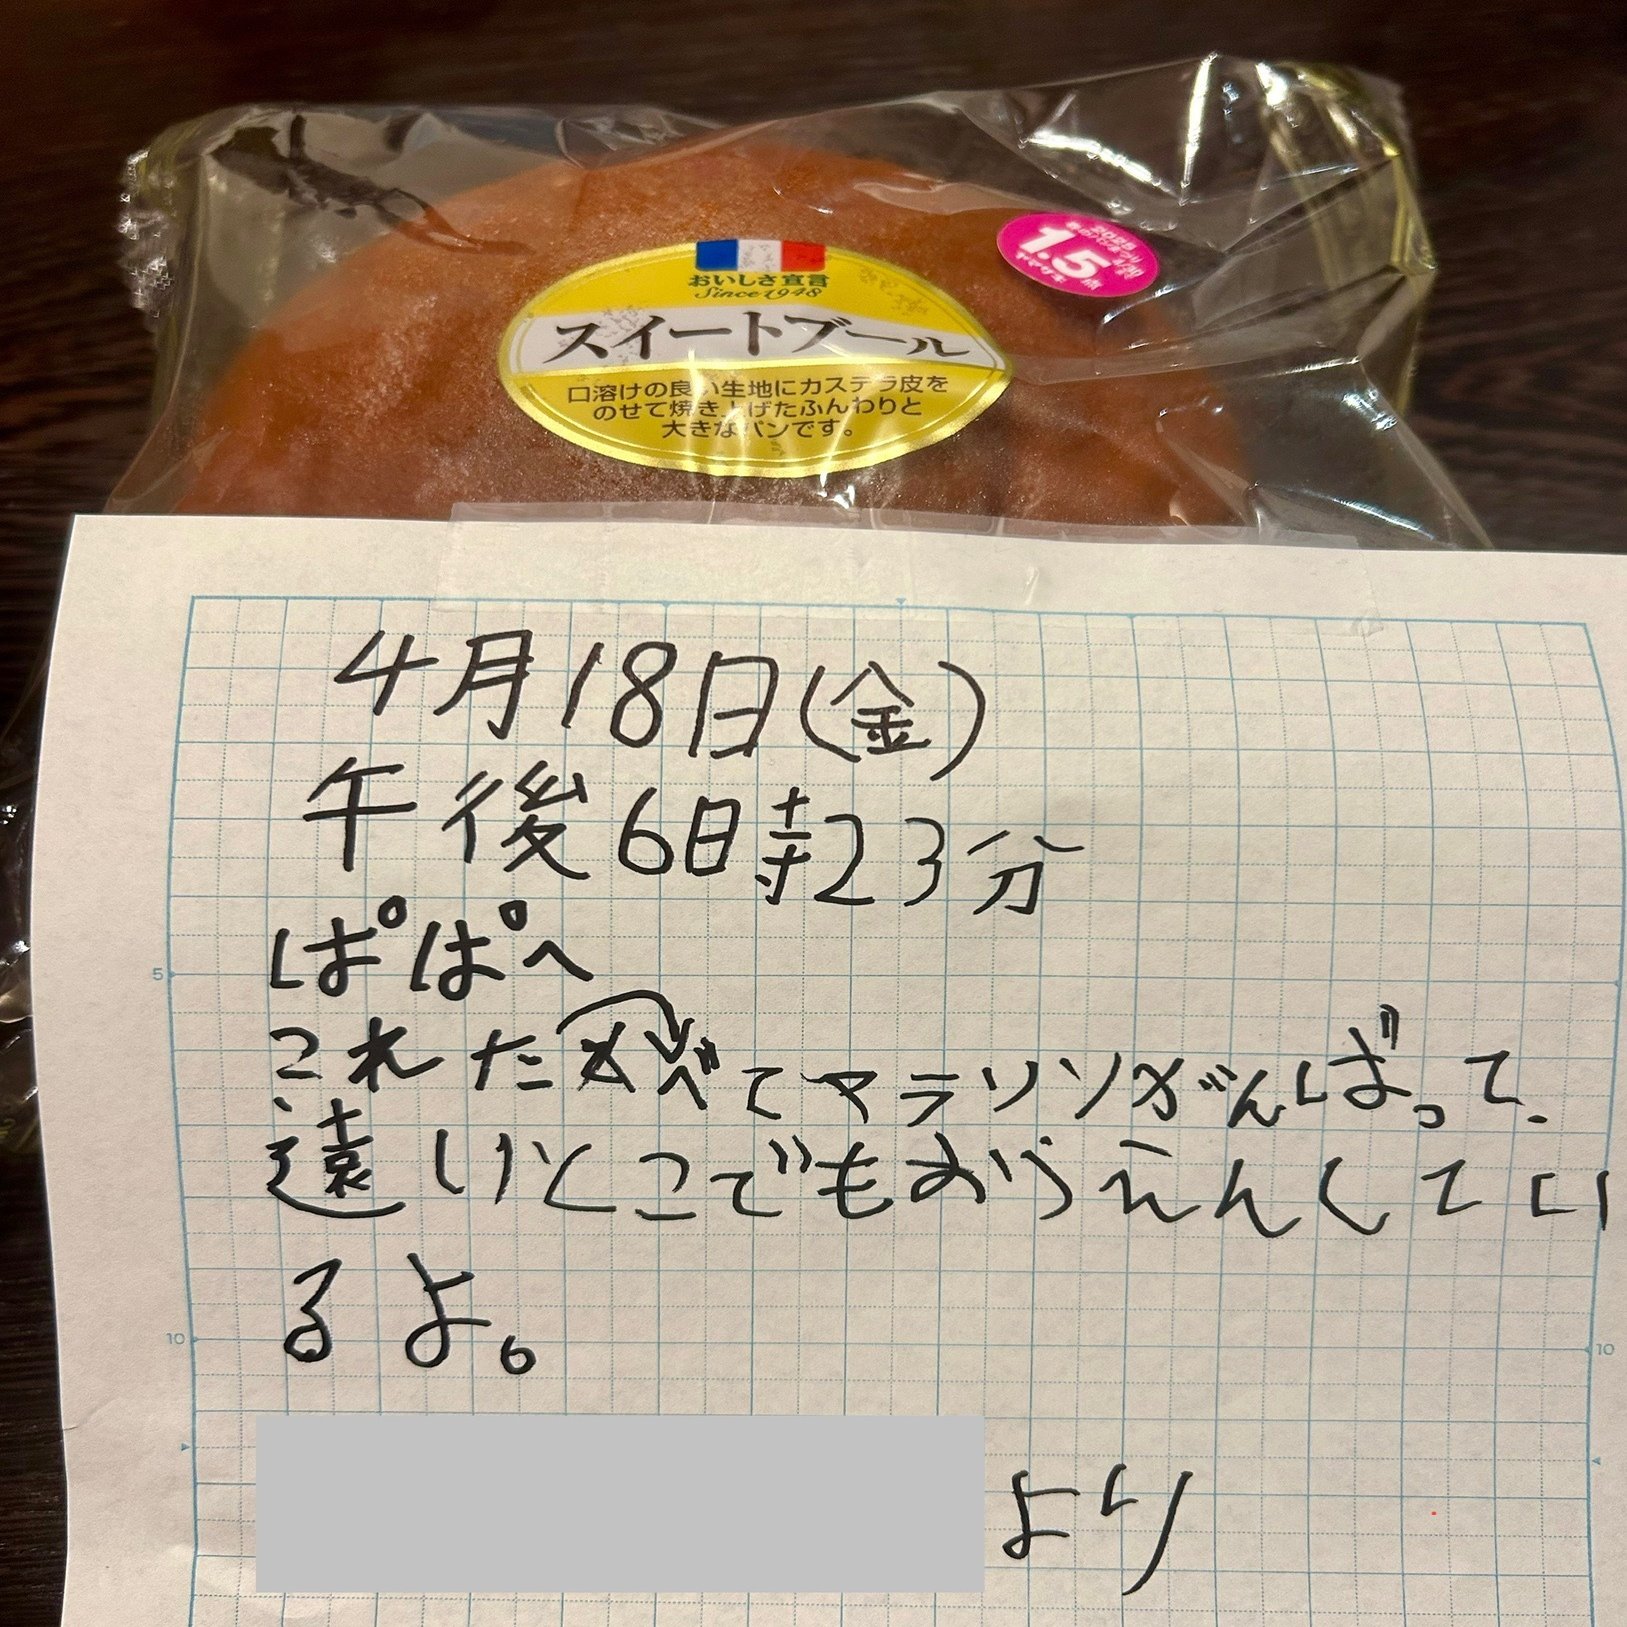 おいしさ宣言
Since 1948
スイートブール
口溶けの良い生地にカステラ皮を
のせて焼き上げたふんわりと
大きなパンです。
2025
1.5
点
ヤマザキ
4月18日(金)
午後6時23分
ぱぱへ
これたべてマラソンがんばって、
遠いとこでもおうえんしてい
るよ。
より
5
10
10